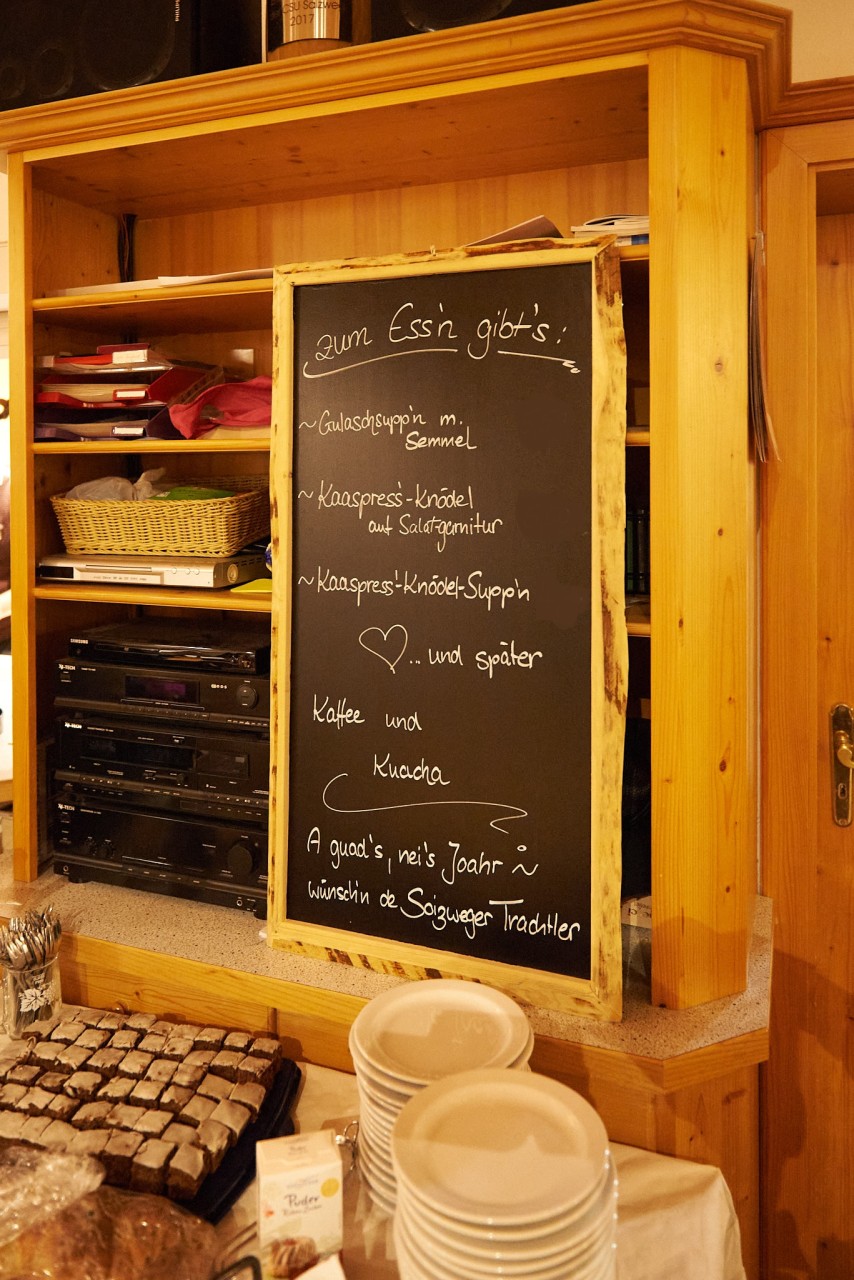 CSU Salzweg
2017
PHILIPS
zum Ess'n gibt's:
~Gulaschsupp'n m.
Semmel
~Kaaspress'-Knödel
auf Salatgarnitur
~Kaaspress'-Knödel-Supp'n
... und später
Kaffee und
Kuacha
A guad's, nei's Joahr
wünsch'n de Soizweger Trachtler
SAMSUNG
Puder